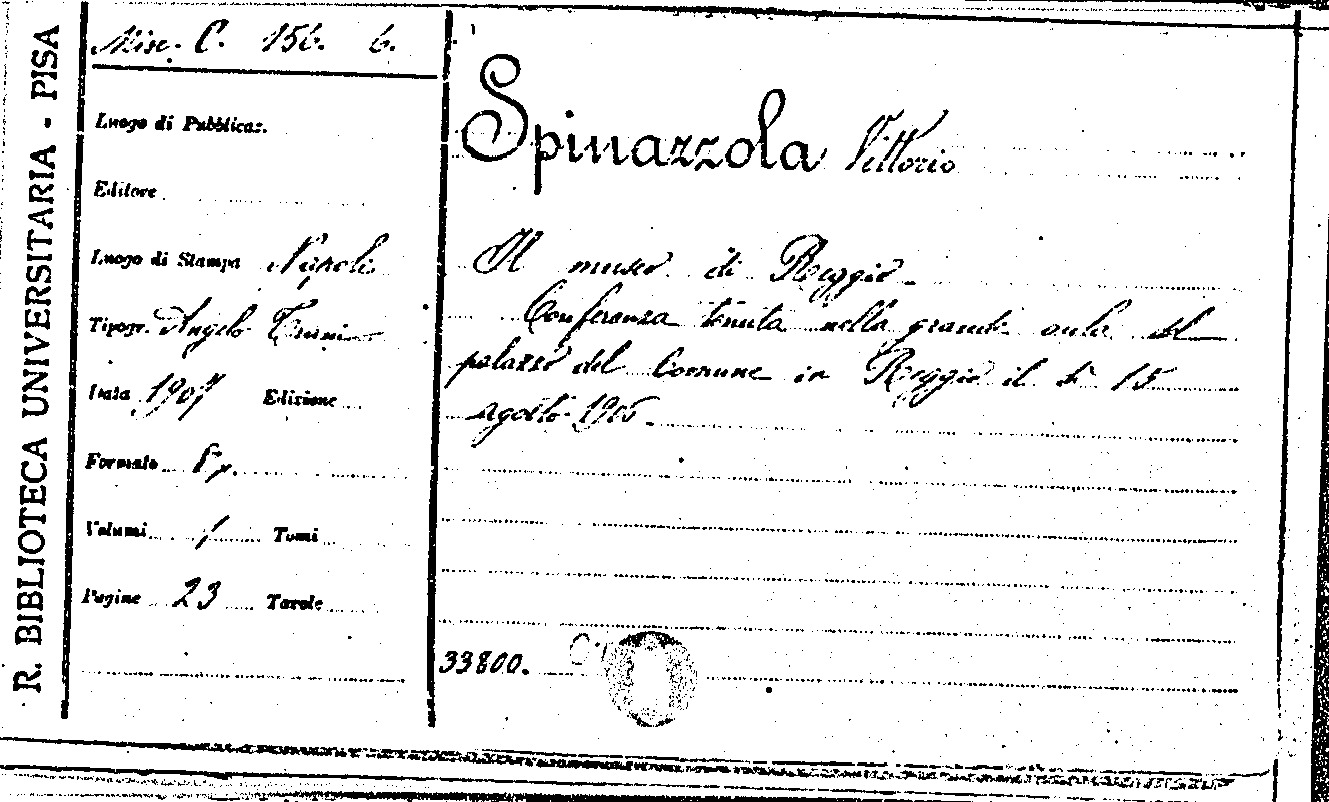 R. BIBLIOTECA UNIVERSITARIA - PISA
Misc. C. 156. 6.
Luogo di Pubblicaz.
Editore
Luogo di Stampa Napoli
Tipogr. Angelo Trani
Data 1907 Edizione
Formato 8º
Volumi 1 Tomi
Pagine 23 Tavole
Spinazzola Vittorio
Il museo di Reggio.
Conferenza tenuta nella grande aula del
palazzo del Comune in Reggio il dì 15
agosto 1906.
33800.